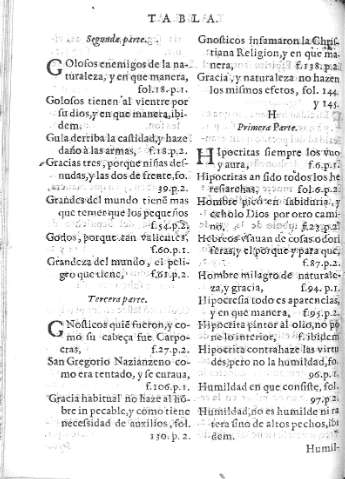 TABLA.
Segunda parte.
Golosos enemigos de la na-
turaleza, y en que manera,
fol.18.p.1.
Golosos tienen al vientre por
su dios, y en que manera, ibi-
dem.
Gula derriba la castidad, y haze
daño à las armas, f.18.p.2.
Gracias tres, porque niñas des-
nudas, y las dos de frente, fo.
39.p.2.
Grandes del mundo tienē mas
que temer que los pequeños
f.54.p.2.
Godos, porque tan valientes,
f.60.p.1.
Grandeza del mundo, el peli-
gro que tiene, f.61.p.2.
Tercera parte.
Gnosticos quiē fueron, y co-
mo su cabeça fue Carpo-
cras, f.27.p.2.
San Gregorio Nazianzeno co-
mo era tentado, y se curaua,
f.106.p.1.
Gracia habitual no haze al hō-
bre impecable, y como tiene
necessidad de auxilios, fol.
130.p.2.
Gnosticos infamaron la Chris-
tiana Religion, y en que ma-
nera, f.138.p.2.
Gracia, y naturaleza no hazen
los mismos efetos, fol. 144.
y 145.
H
Primera Parte.
Hipocritas siempre los vuo
y aura, f.6.p.1.
Hipocritas an sido todos los he
resiarchas, fol.6.p.2.
Hombre picò en sabiduria, y
echolo Dios por otro cami-
no, f.23.p.2.
Hebreos vsauan de cosas odori
feras, y el porque y para que,
f.87.p.2.
Hombre milagro de naturale-
za, y gracia, f.94.p.1.
Hipocresia todo es apariencias,
y en que manera, f.95.p.2.
Hipocrita pintor al olio, no po
ne lo interior, f.ibidem
Hipocrita contrahaze las virtu
des, pero no la humildad, fo.
96.p.1.
Humildad en que consiste, fol.
97.p.2.
Humildad, no es humilde ni ra
tera sino de altos pechos, ibi
dem.
Humil-